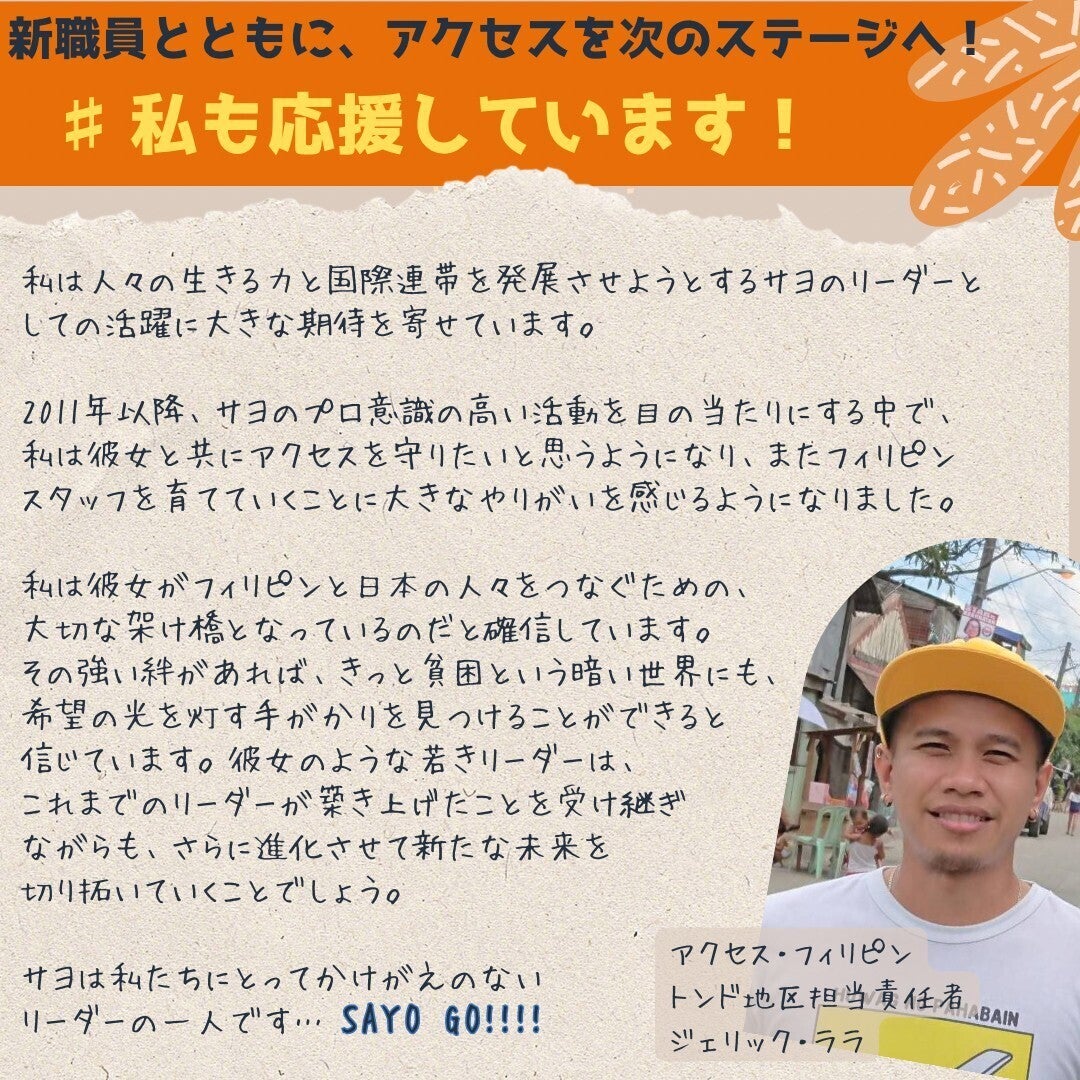 新職員とともに、アクセスを次のステージへ！
# 私も応援しています！
私は人々の生きる力と国際連帯を発展させようとするサヨのリーダーと
しての活躍に大きな期待を寄せています。
2011年以降、サヨのプロ意識の高い活動を目の当たりにする中で、
私は彼女と共にアクセスを守りたいと思うようになり、またフィリピン
スタッフを育てていくことに大きなやりがいを感じるようになりました。
私は彼女がフィリピンと日本の人々をつなぐための、
大切な架け橋となっているのだと確信しています。
その強い絆があれば、きっと貧困という暗い世界にも、
希望の光を灯す手がかりを見つけることができると
信じています。彼女のような若きリーダーは、
これまでのリーダーが築き上げたことを受け継ぎ
ながらも、さらに進化させて新たな未来を
切り拓いていくことでしょう。
サヨは私たちにとってかけがえのない
リーダーの一人です… SAYO GO!!!!
アクセス・フィリピン
トンド地区担当責任者
ジェリック・ララ